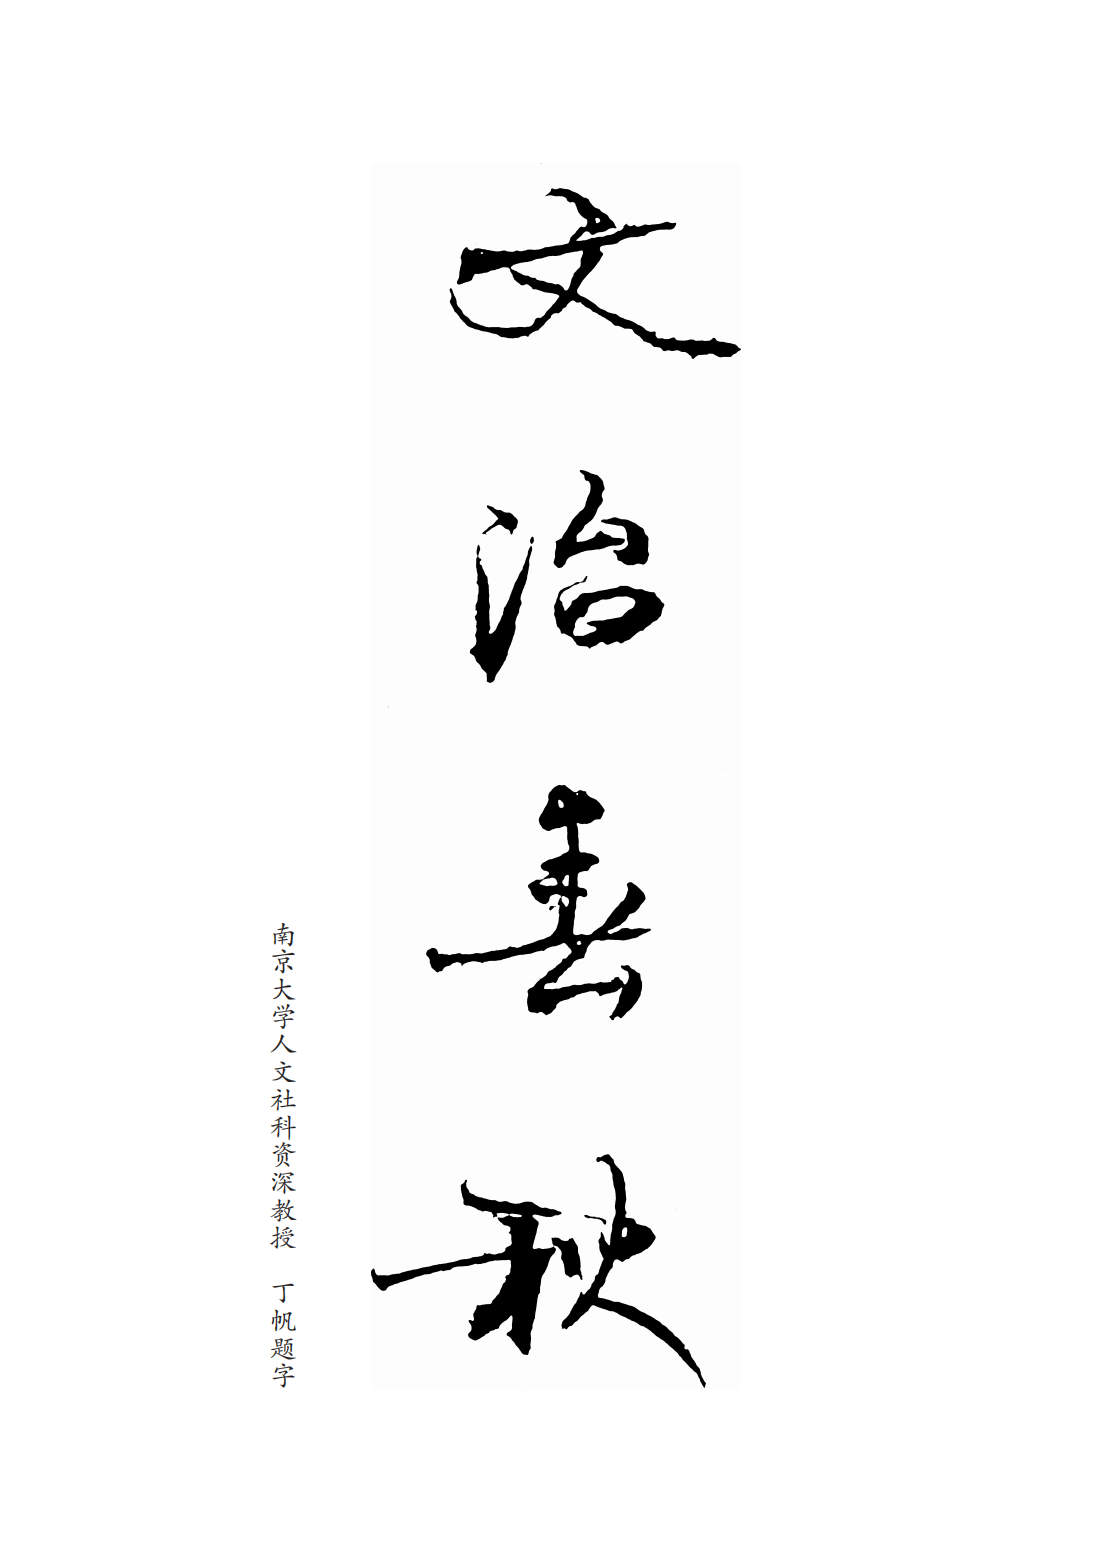 文治春秋
南京大学人文社科资深教授 丁帆题字